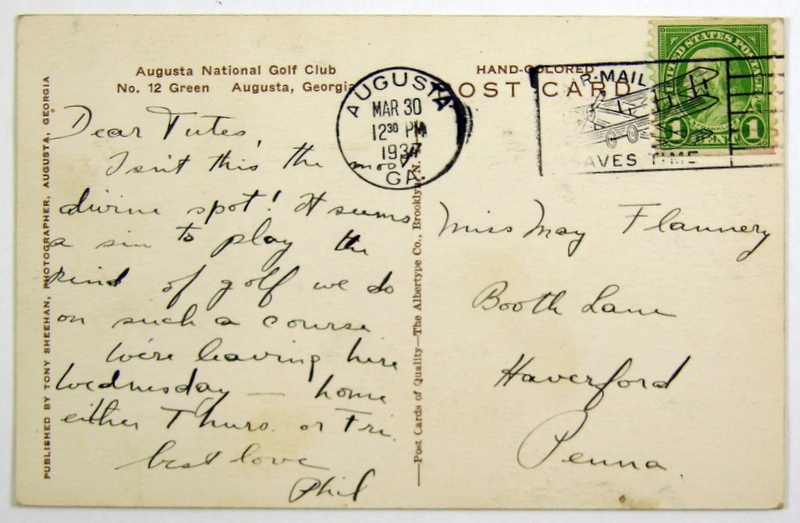 Augusta National Golf Club
No. 12 Green Augusta, Georgia
HAND-COLORED
POST CARD
AUGUSTA
MAR 30
12 30 PM
1937
GA.
R-MAIL
AVES TIME
UNITED STATES POSTAGE
1 CENT 1
Dear Tutes'
Isn't this the most
divine spot! It seems
a sin to play the
kind of golf we do
on such a course
We're leaving here
Wednesday — home
either Thurs. or Fri.
best love
Phil
Miss May Flannery
Booth Lane
Haverford
Penna.
PUBLISHED BY TONY SHEEHAN, PHOTOGRAPHER, AUGUSTA, GEORGIA
—Post Cards of Quality—The Albertype Co., Brooklyn, N.